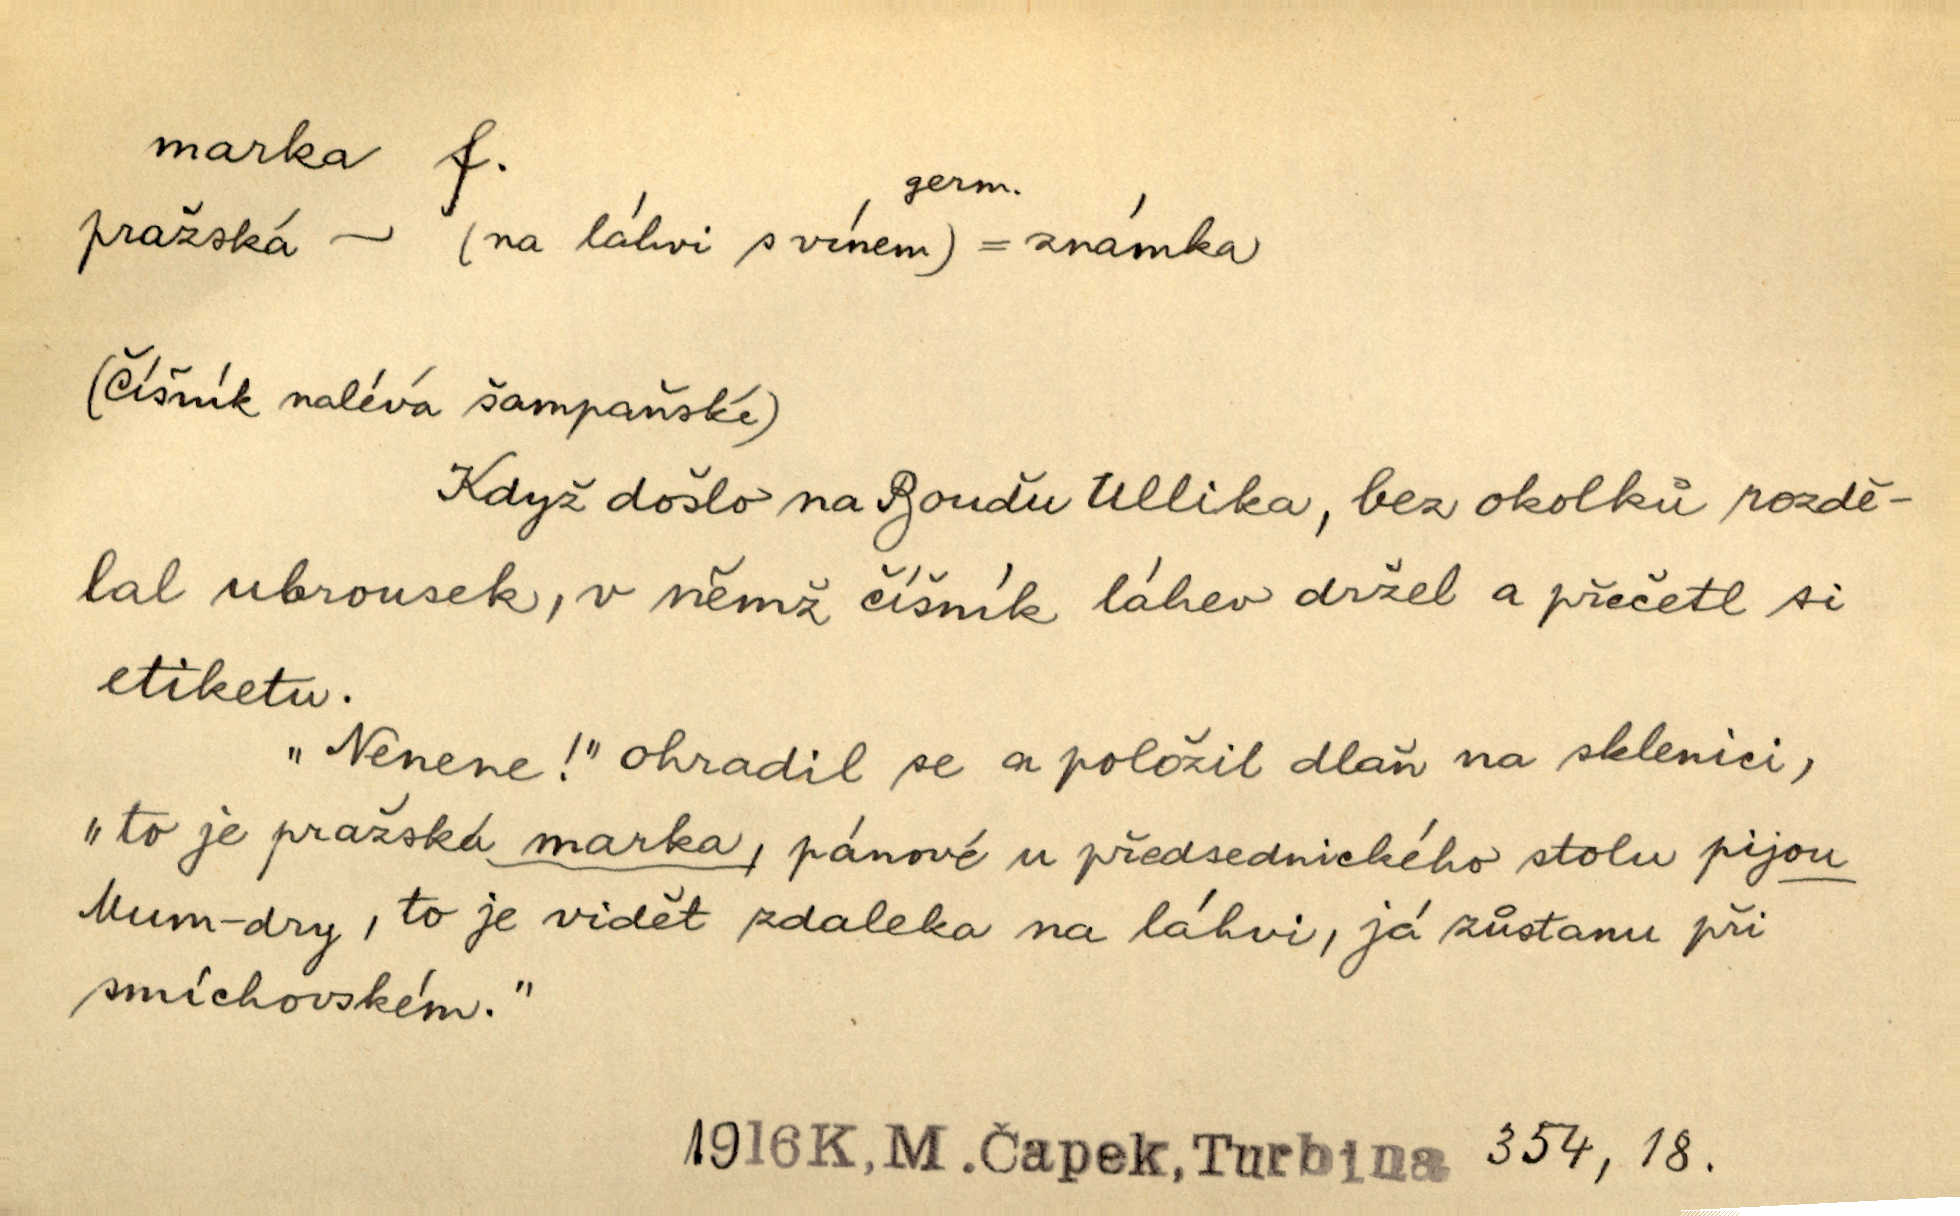 marka f.
germ.
pražská ~ (na láhvi s vínem) = známka
(Číšník nalévá šampaňské)
Když došlo na Bouďu Ullika, bez okolků rozdě-
lal ubrousek, v němž číšník láhev držel a přečetl si
etiketu.
„Nenene!" ohradil se a položil dlaň na sklenici,
„to je pražská marka, pánové u předsednického stolu pijou
Mum-dry, to je vidět zdaleka na láhvi, já zůstanu při
smíchovském."
1916 K, M. Čapek, Turbina 354, 18.